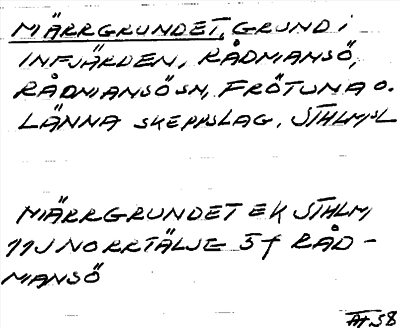 MÄRRGRUNDET, GRUND i
INFJÄRDEN, RÅDMANSÖ,
RÅDMANSÖ SN, FRÖTUNA O.
LÄNNA SKEPPSLAG, STHLMSL
MÄRRGRUNDET EK STHLM
11J NORRTÄLJE 5f RÅD-
MANSÖ
AH 58